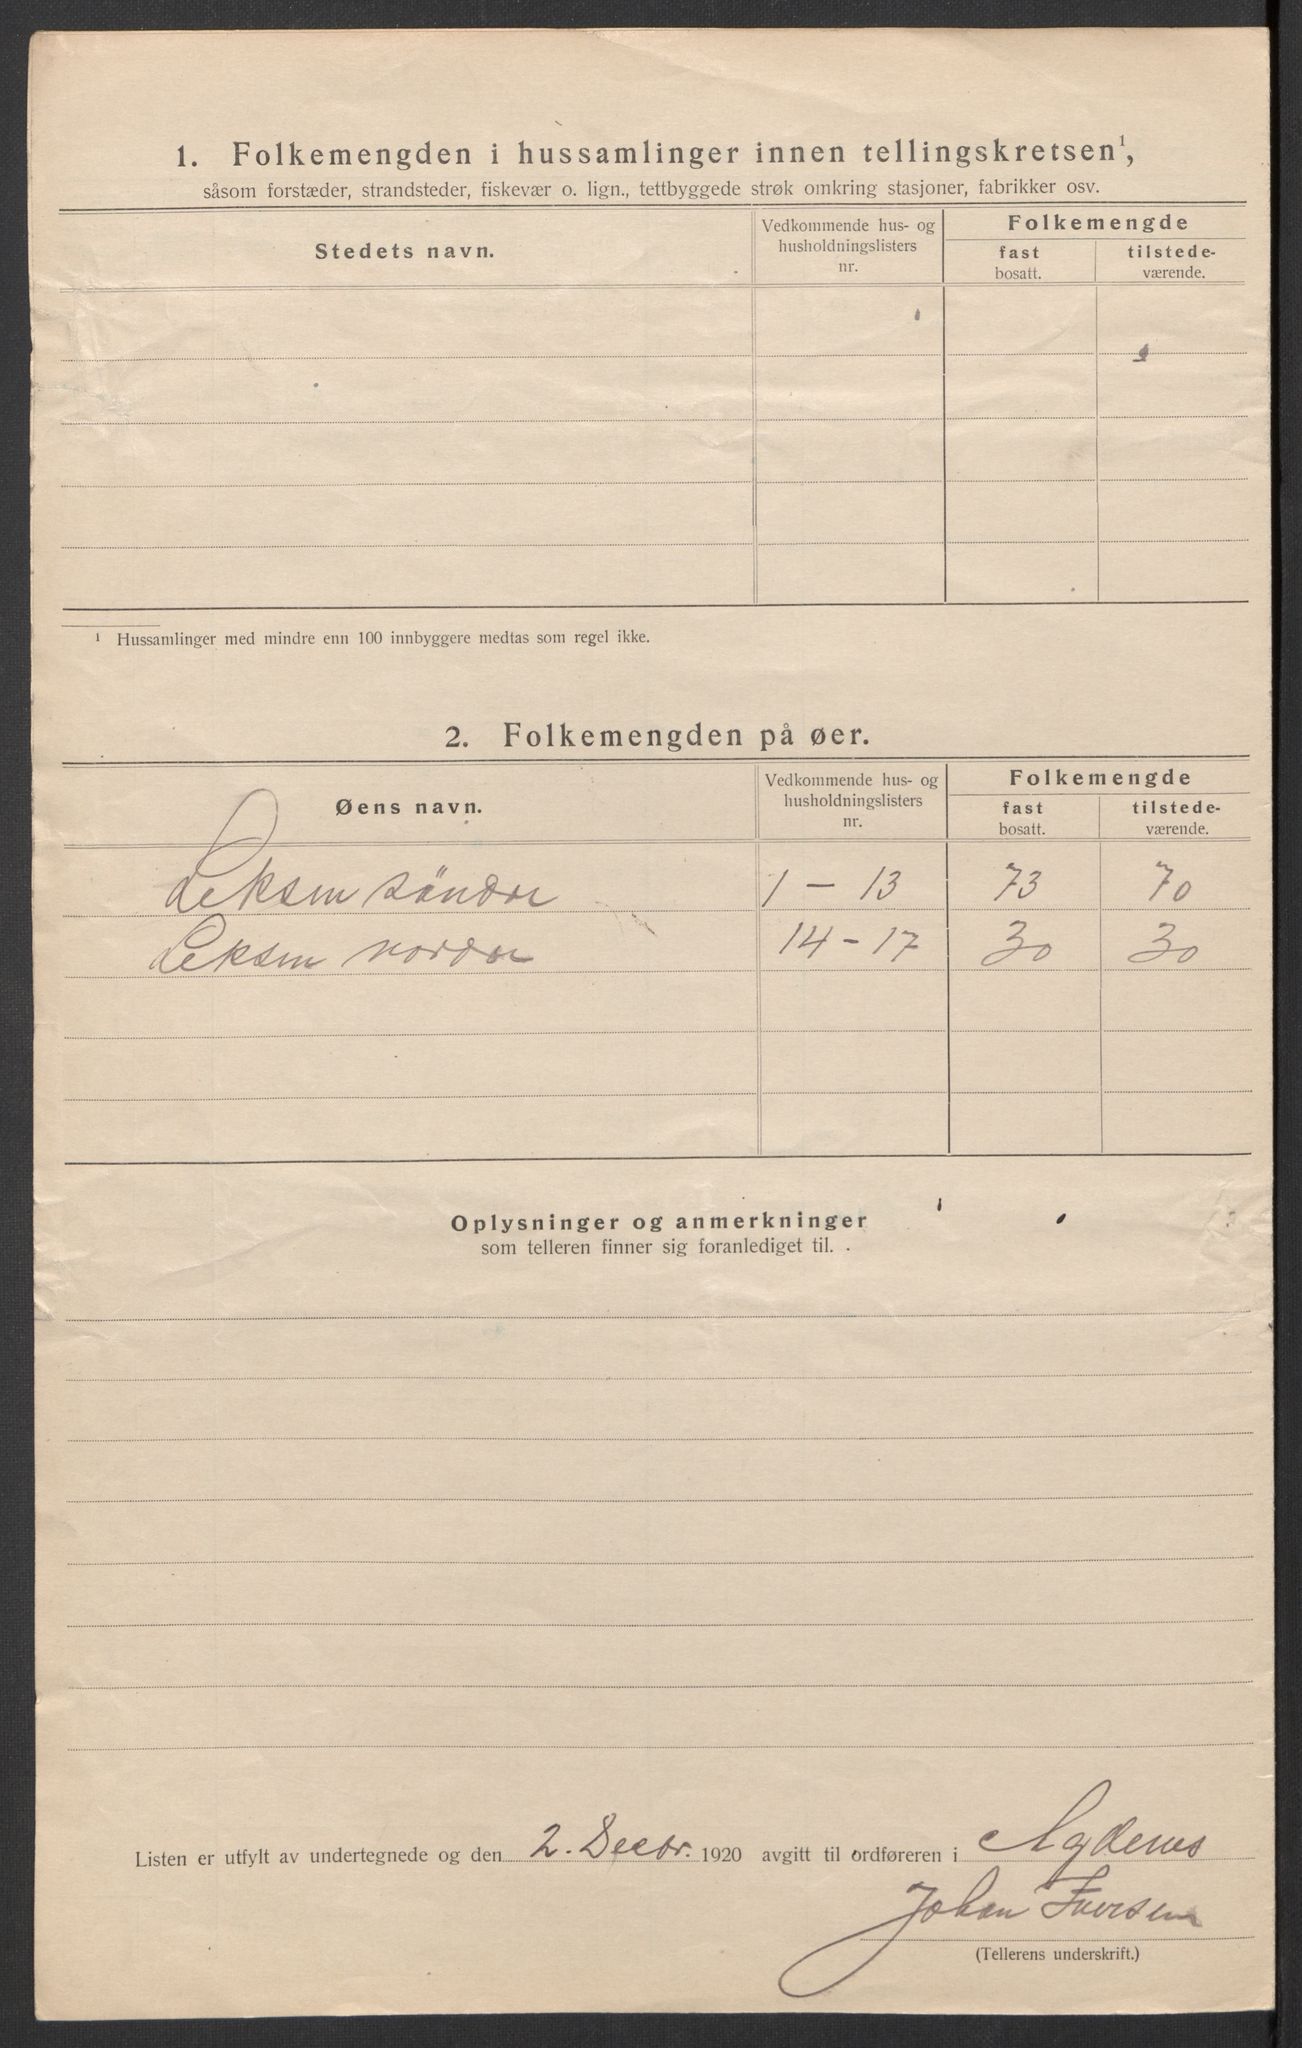 1. Folkemengden i hussamlinger innen tellingskretsen¹,
såsom forstæder, strandsteder, fiskevær o. lign., tettbyggede strøk omkring stasjoner, fabrikker osv.
Stedets navn.
Vedkommende hus- og
husholdningslisters
nr.
Folkemengde
fast
bosatt.
tilstede-
værende.
¹ Hussamlinger med mindre enn 100 innbyggere medtas som regel ikke.
2. Folkemengden på øer.
Øens navn.
Vedkommende hus- og
husholdningslisters
nr.
Folkemengde
fast
bosatt.
tilstede-
værende.
Leksen söndre 1 - 13 73 70
Leksen nordre 14 - 17 30 30
Oplysninger og anmerkninger
som telleren finner sig foranlediget til.
Listen er utfylt av undertegnede og den 2. Decbr. 1920 avgitt til ordføreren i Agdenes
Johan Iversen
(Tellerens underskrift.)